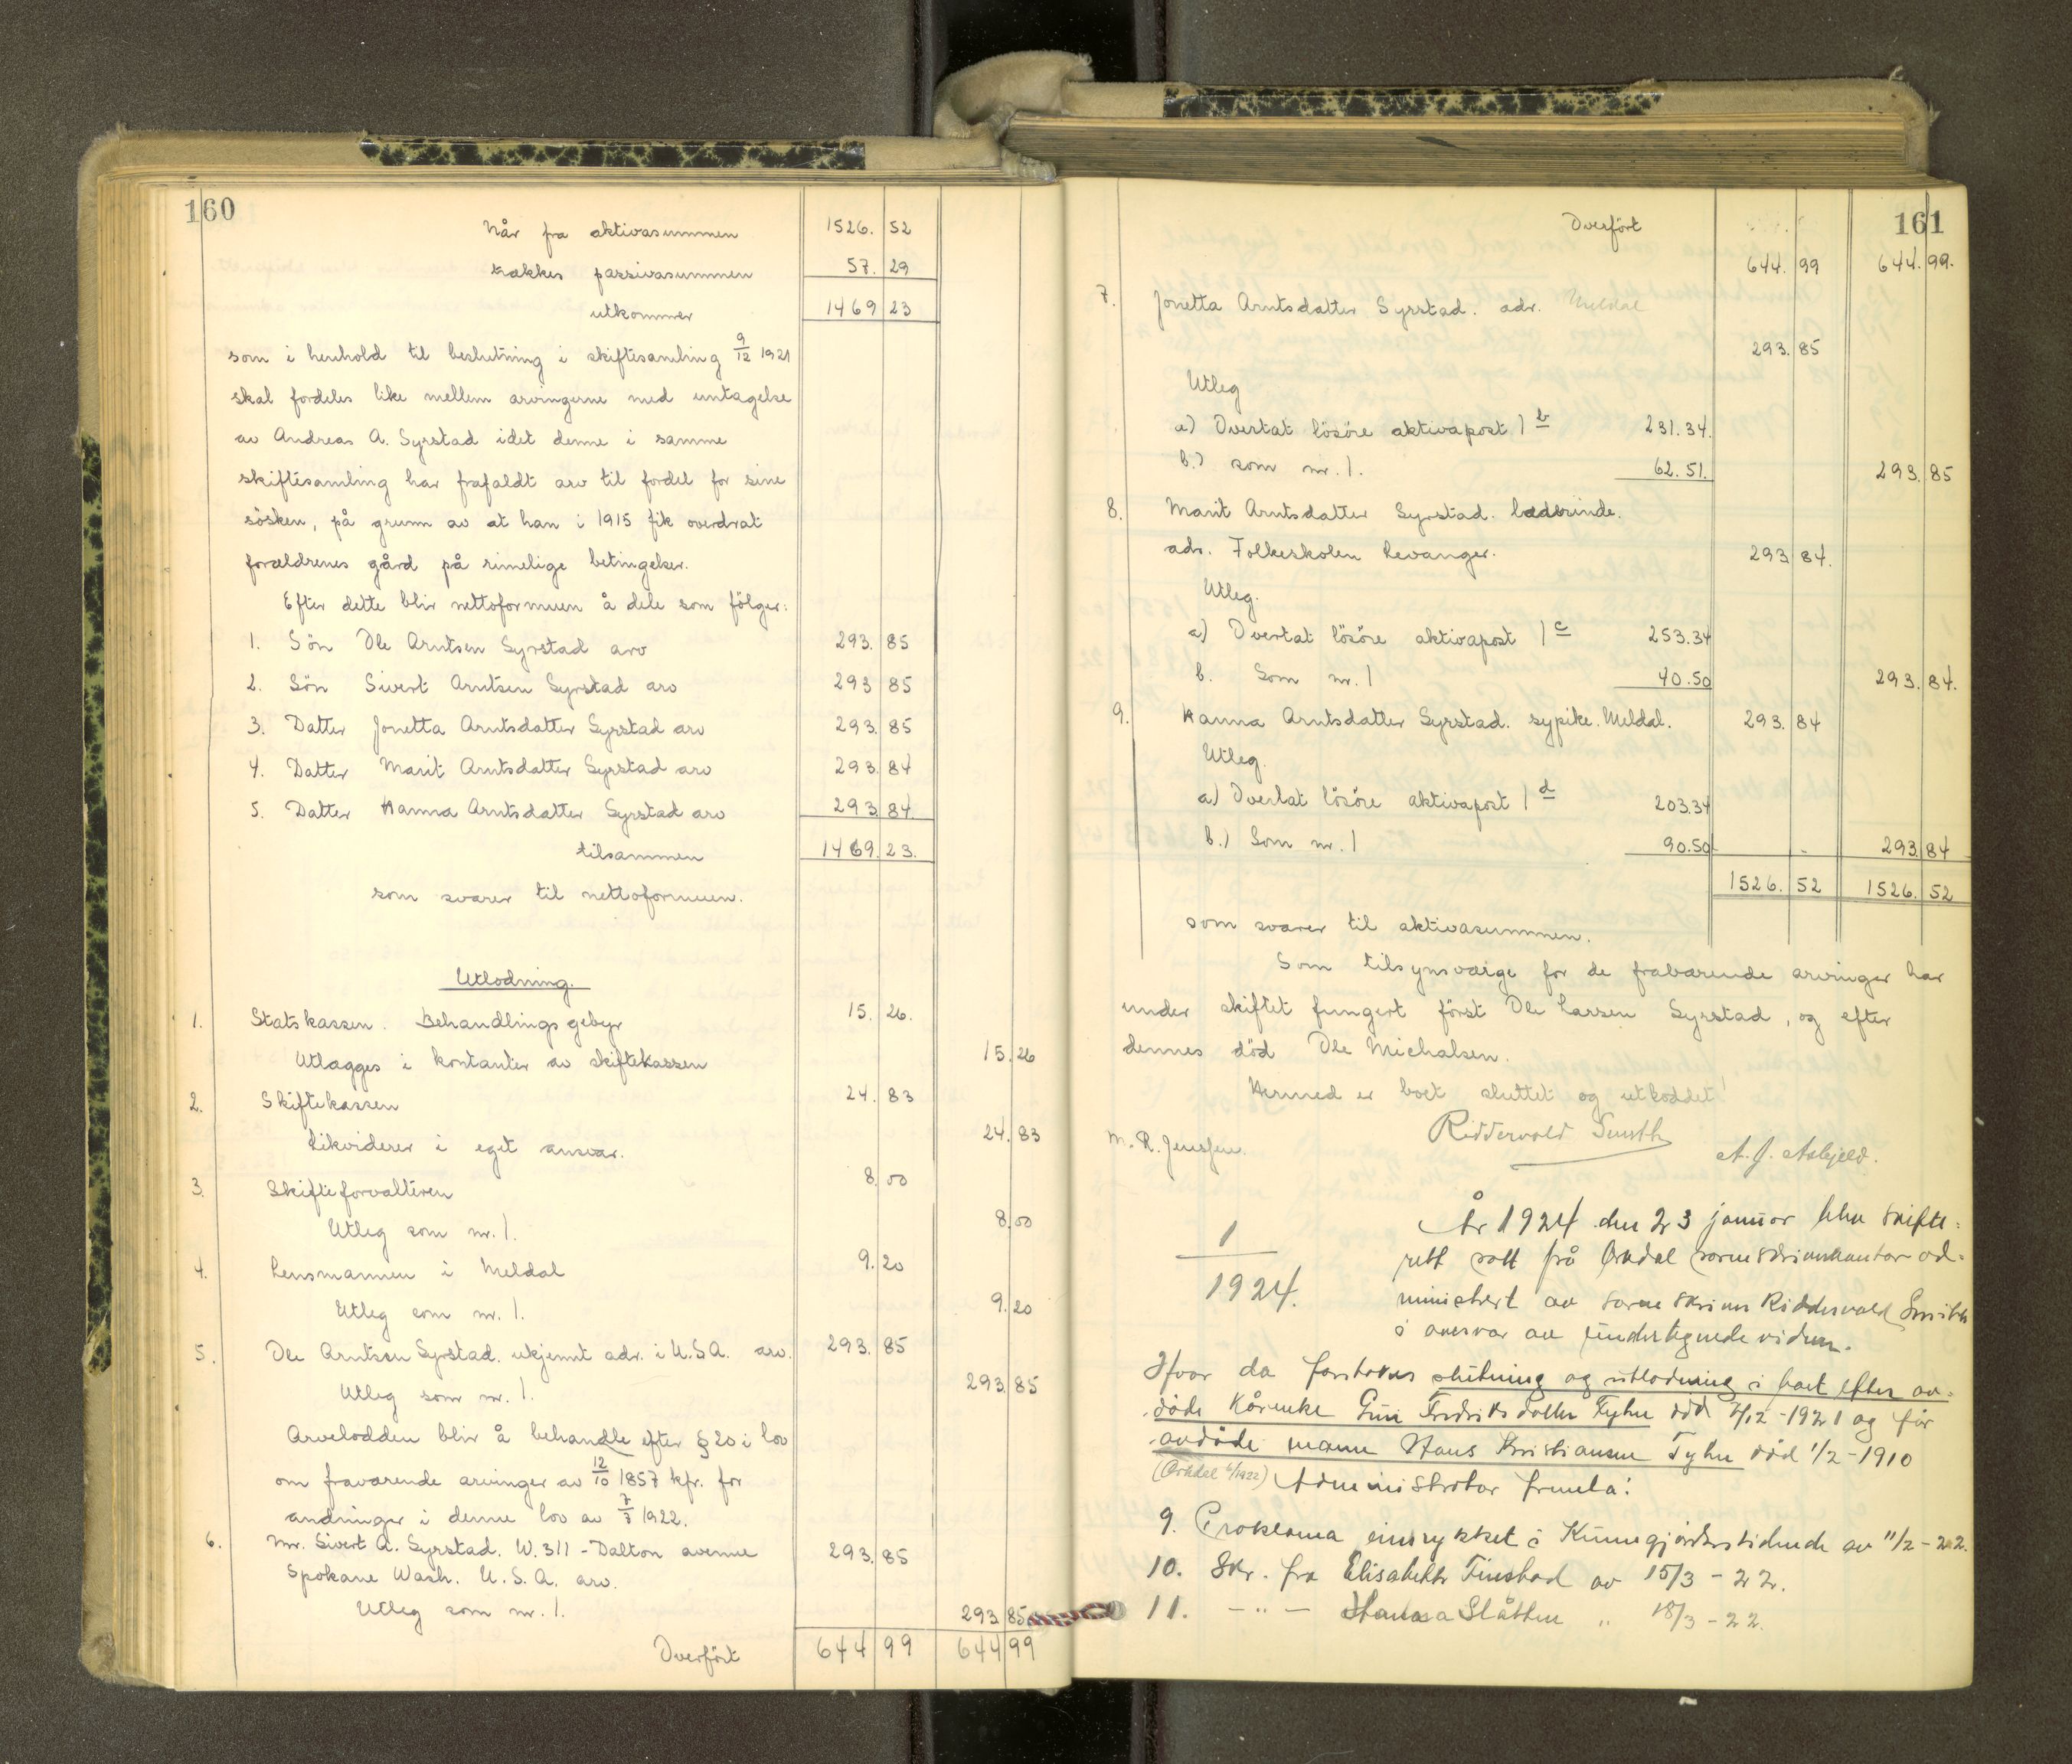 160
Når fra aktivasummen 1526. 52
trækkes passivasummen 57. 29
utkommer 1469 23
som i henhold til beslutning i skiftesamling 9/12 1921
skal fordeles like mellem arvingerne med untagelse
av Andreas A. Syrstad idet denne i samme
skiftesamling har frafaldt arv til fordel for sine
søsken, på grunn av at han i 1915 fik overdrat
forældrenes gård på rimelige betingelser.
Efter dette blir nettoformuen å dele som følger:
1. Søn Ole Arntsen Syrstad arv 293. 85
2. Søn Sivert Arntsen Syrstad arv 293 85
3. Datter Jonetta Arntsdatter Syrstad arv 293. 85
4. Datter Marit Arntsdatter Syrstad arv 293. 84
5. Datter Hanna Arntsdatter Syrstad arv 293. 84.
tilsammen 1469. 23.
som svarer til nettoformuen.
Utlodning.
1. Statskassen. Behandlingsgebyr 15. 26.
Utlægges i kontanter av skiftekassen 15. 26
2. Skiftekassen 24. 83
Likviderer i eget ansvar. 24. 83
3. Skifteforvalteren 8. 00
Utleg som nr. 1. 8. 00
4. Lensmannen i Meldal 9. 20
Utleg som nr. 1. 9. 20
5. Ole Arntsen Syrstad. ukjennt adr. i U.S.A. arv. 293. 85
Utleg som nr. 1. 293. 85
Arvelodden blir å behandle efter § 20 i lov
om fraværende arvinger av 12/10 1857 kfr. for
andringer i denne lov av 7/7 1922.
6. Mr. Sivert A. Syrstad. W. 311 - Dalton avenue 293. 85
Spokane Wash. U.S.A. arv.
Utleg som nr. 1. 293. 85
Overført 644 99 644 99
161
Overført
644. 99 644. 99.
7. Jonetta Arntsdatter Syrstad. adr. Meldal
293. 85
Utleg
a) Overtat løsøre aktivapost 1 b 231.34.
b.) som nr. 1. 62.51. 293. 85
8. Marit Arntsdatter Syrstad. lærerinde.
adr. Folkeskolen Levanger. 293 84.
Utleg.
a) Overtat løsøre aktivapost 1 c 253.34
b. Som nr. 1 40.50 293. 84.
9. Hanna Arntsdatter Syrstad. sypike. Meldal. 293. 84
Utleg.
a) Overtat løsøre aktivapost 1 d 203.34
b.) Som nr. 1 90.50 293. 84
1526. 52 1526. 52
som svarer til aktivasummen.
Som tilsynsværge for de fraværende arvinger har
under skiftet fungert først Ole Larsen Syrstad, og efter
dennes død Ole Michalsen.
Hermed er boet sluttet og utloddet!
M. R. Jenssen. Riddervold Smith A. J. Asbjeld.
1/1924.
År 1924 den 23 januar blev skifte-
rett satt på Orkdal sorenskriverkontor ad-
ministrert av sorenskriver Riddervold Smith
i overvær av undertegnede vidner.
Hvor da foretokes slutning og utlodning i boet efter av-
døde kårenke Guri Fredriksdatter Tyhu død 2/12 - 1921 og før
avdøde mann Hans Kristiansen Tyhu død 1/2 - 1910
(Orkdal 6/1922) Administrator fremla:
9. Proklama innrykket i Kunngjørelsestidende av 11/2 - 22.
10. Skr. fra Elisabeth Finstad av 15/3 - 22.
11. - " - Hanna Slåtten " 18/3 - 22.